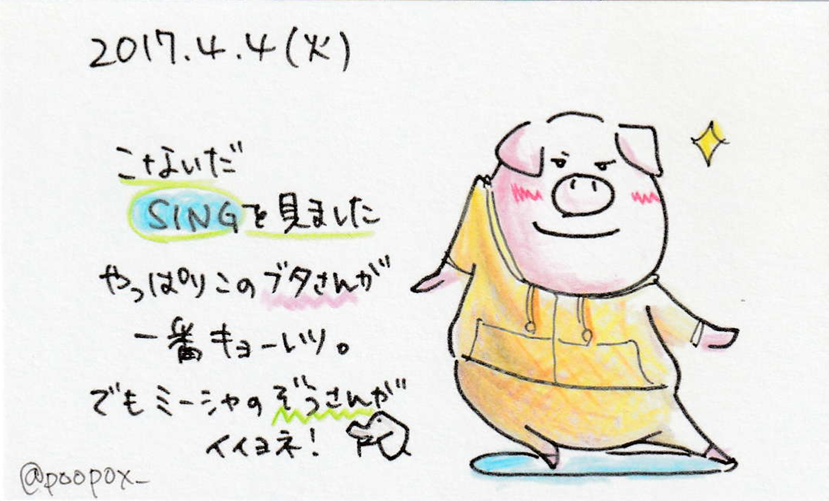 2017.4.4(火)
こないだ
SINGを見ました
やっぱりこのブタさんが
一番キョーレツ。
でもミーシャのぞうさんが
イイヨネ!
@poopox_